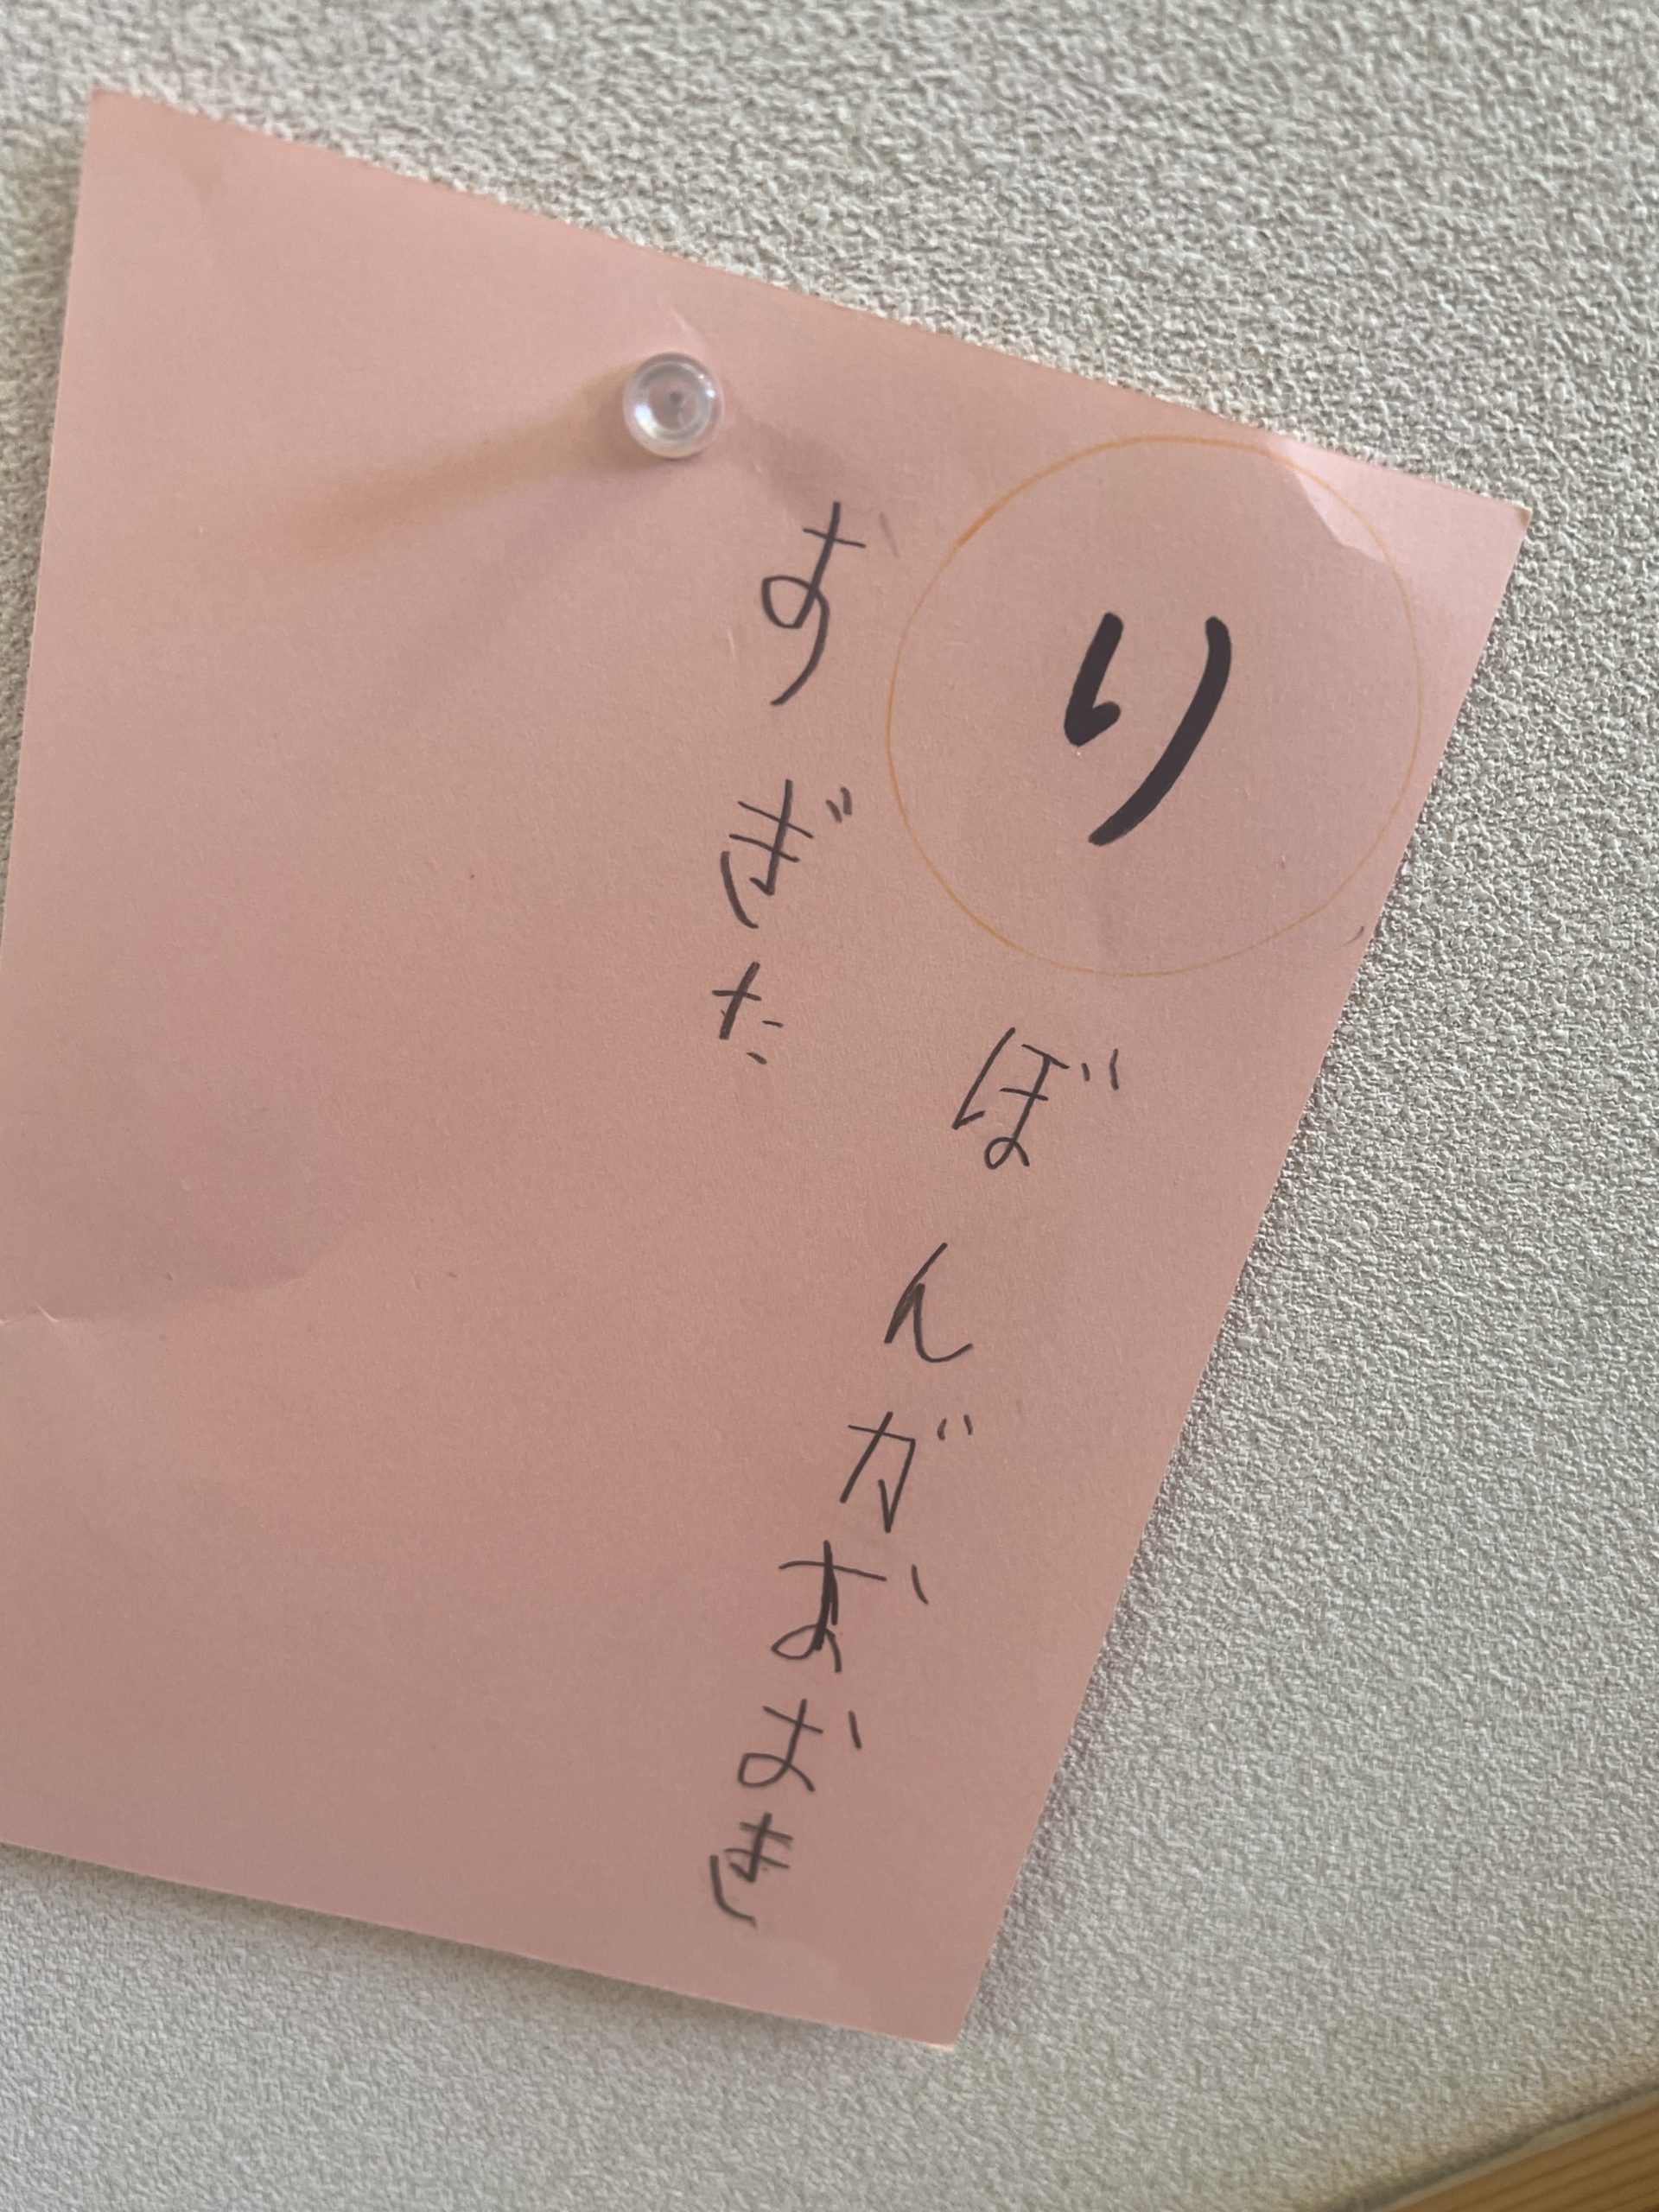 りぼんがおおき
すぎた